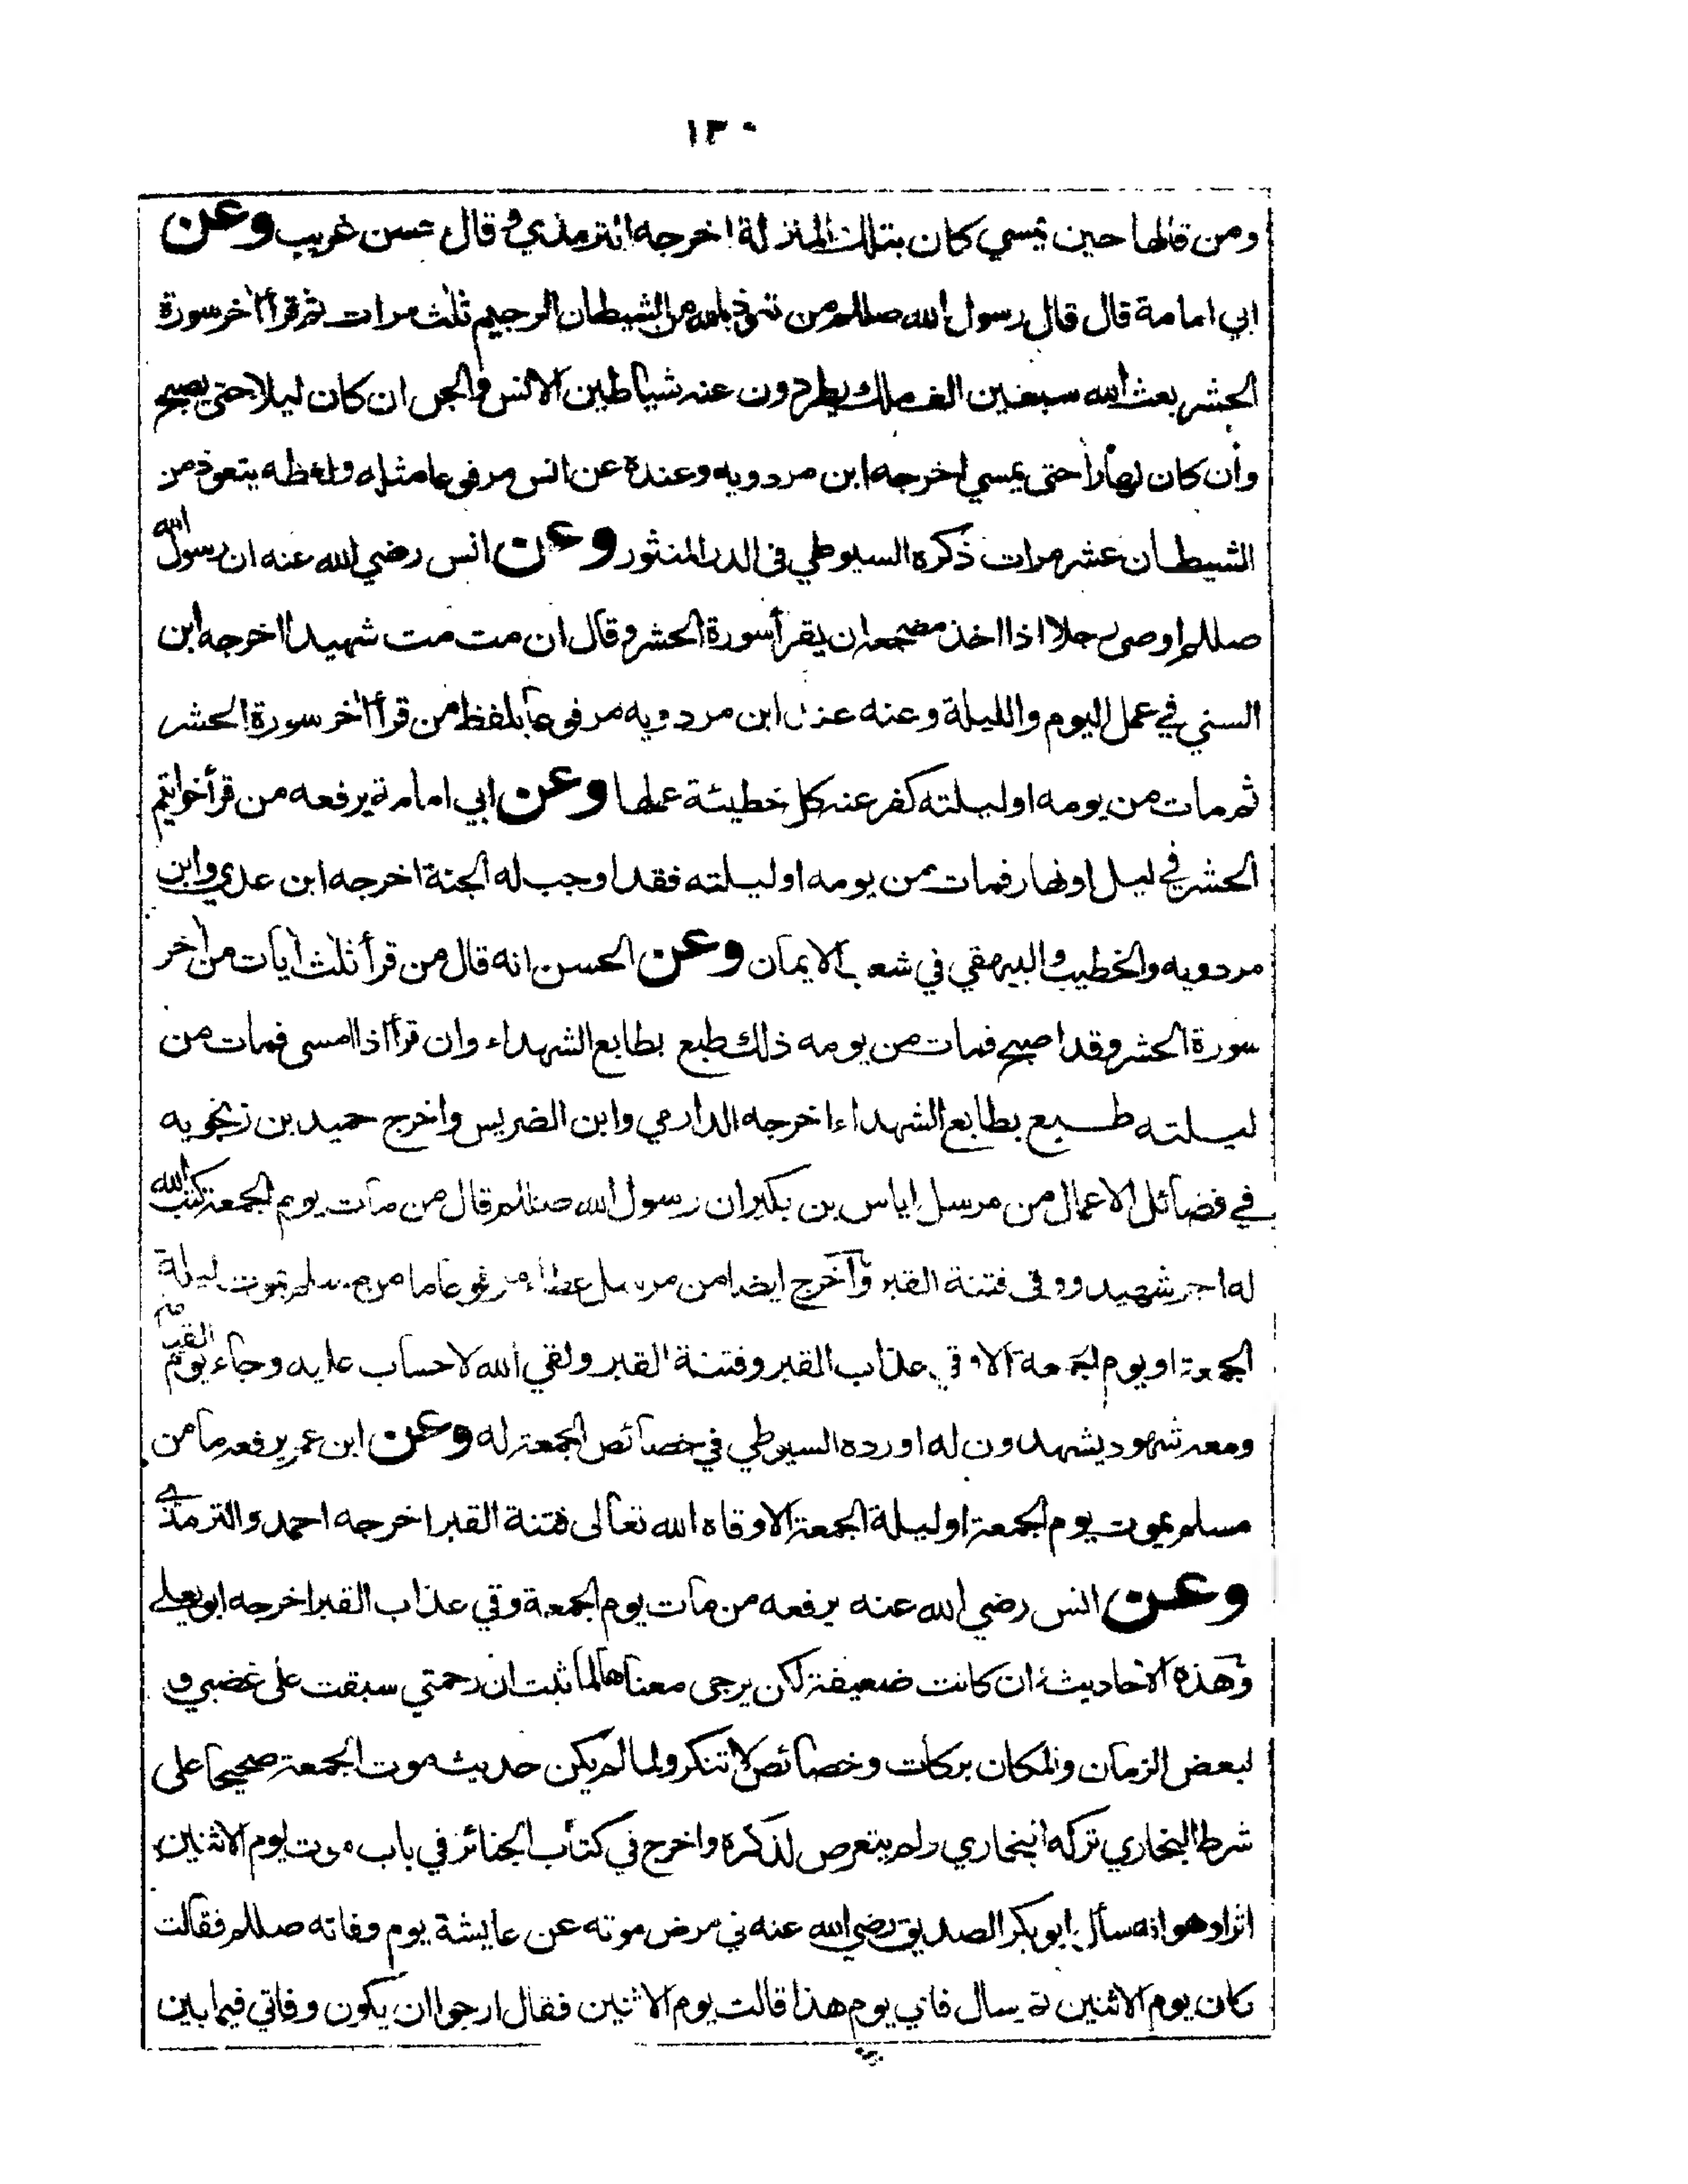 ١٣٠
ومن قالها حين يمسي كان بتلك المنزلة اخرجه الترمذي وقال حسن غريب وعن
ابي امامة قال قال رسول الله صللم من تعوذ بالله من الشيطان الرجيم ثلث مرات ثم قرأ اٰخر سورة
الحشر بعث الله سبعين الف ملك يطردون عنه شياطين الانس والجن ان كان ليلا حتى يصبح
وان كان نهارا حتى يمسي اخرجه ابن مردويه وعنده عن انس مرفوعا مثله ولفظه يتعوذ من
الشيطان عشر مرات ذكره السيوطي في الدر المنثور وعن انس رضي الله عنه ان رسول الله
صللم اوصى رجلا اذا اخذ مضجعه ان يقرأ سورة الحشر وقال ان مت مت شهيدا اخرجه ابن
السني في عمل اليوم والليلة وعنه عند ابن مردويه مرفوعا بلفظ من قرأ اٰخر سورة الحشر
ثم مات من يومه او ليلته كفر عنه كل خطيئة عملها وعن ابي امامة يرفعه من قرأ خواتيم
الحشر في ليل او نهار فمات من يومه او ليلته فقد اوجب له الجنة اخرجه ابن عدي وابن
مردويه والخطيب والبيهقي في شعب الايمان وعن الحسن انه قال من قرأ ثلث اٰيات من اٰخر
سورة الحشر وقد اصبح فمات من يومه ذلك طبع بطابع الشهداء وان قرأ اذا امسى فمات من
ليلته طبع بطابع الشهداء اخرجه الدارمي وابن الضريس واخرج حميد بن زنجويه
في فضائل الاعمال من مرسل اياس بن بكير ان رسول الله صللم قال من مات يوم الجمعة كتب الله
له اجر شهيد ووقي فتنة القبر واخرج ايضا من مرسل عطاء مرفوعا ما من مسلم يموت ليلة
الجمعة او يوم الجمعة الا وقي عذاب القبر وفتنة القبر ولقي الله لا حساب عليه وجاء يوم القيمة
ومعه شهود يشهدون له اورده السيوطي في خصائص الجمعة له وعن ابن عمر يرفعه ما من
مسلم يموت يوم الجمعة او ليلة الجمعة الا وقاه الله تعالى فتنة القبر اخرجه احمد والترمذي
وعن انس رضي الله عنه يرفعه من مات يوم الجمعة وقي عذاب القبر اخرجه ابو يعلى
وهذه الاحاديث وان كانت ضعيفة لكن يرجى معناها لما ثبت ان رحمتي سبقت على غضبي و
لبعض الزمان والمكان بركات وخصائص لا تنكر ولما لم يكن حديث موت الجمعة صحيحا على
شرط البخاري تركه البخاري ولم يتعرض لذكره واخرج في كتاب الجنائز في باب موت يوم الاثنين
اثرا وهو انه سأل ابو بكر الصديق رضي الله عنه في مرض موته عن عايشة يوم وفاته صللم فقالت
كان يوم الاثنين سال فاي يوم هذا قالت يوم الاثنين فقال ارجوا ان يكون وفاتي فيما بين